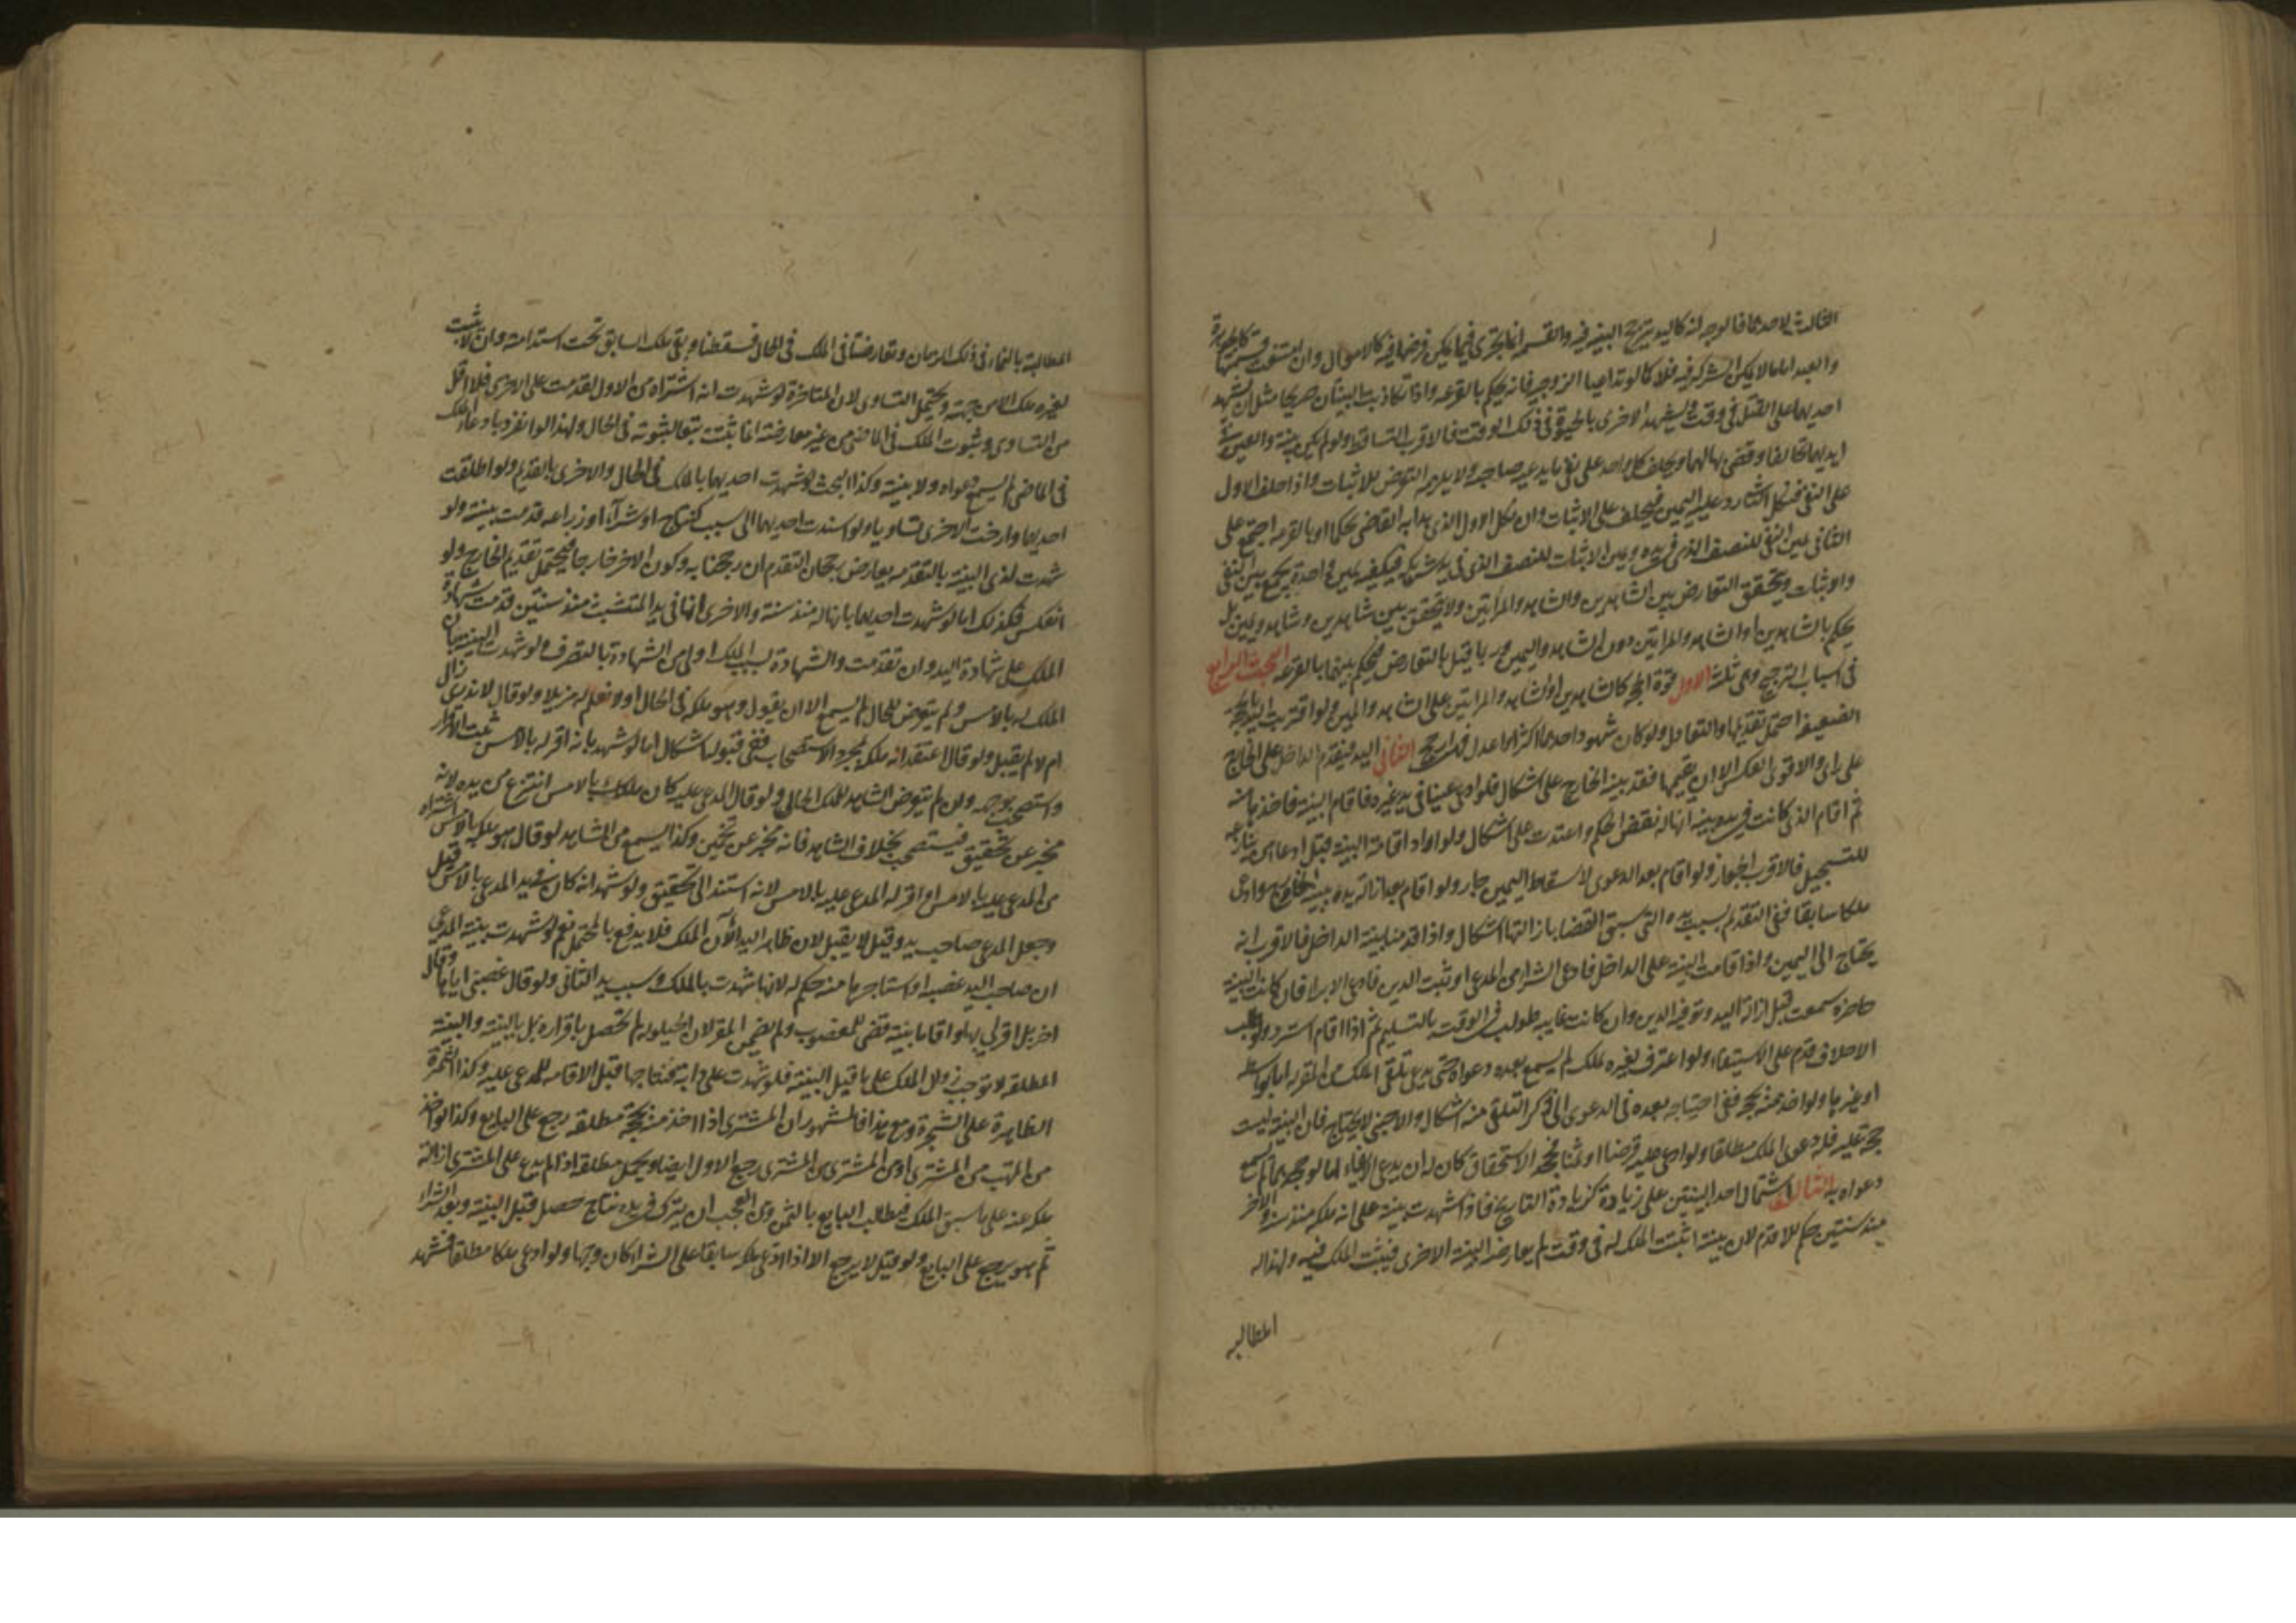 الثالث لاحدهما فالوجه انه كاليد ترجح البينة فيه والقسمة انما تجرى فيما يمكن فرضها فيه كالاموال وان امتنعت قسمتها كالجوهرة
والعبد اما ما لا يمكن الشركة فيه فلا كما لو تداعيا الزوجية فانه يحكم بالقرعة واذا تكاذبت البينتان صريحا مثل ان يشهد
احديهما على القتل فى وقت ويشهد الاخرى بالحيوة فى ذلك الوقت فالاقرب التساقط ولو لم يكن بينة والعين فى
ايديهما تحالفا وقضى بها لهما ويحلف كل واحد على نفى ما يدعيه صاحبه ولا يلزمه التعرض للاثبات واذا حلف الاول
على النفى فنكل الثانى رد عليه اليمين فيحلف على الاثبات وان نكل الاول الذى بدا به القاضى تحكما او بالقرعة اجتمع على
الثانى يمين النفى للنصف الذى فى يده ويمين الاثبات للنصف الذى فى يد شريكه فيكفيه يمين واحدة يجمع بين النفى
والاثبات ويتحقق التعارض بين الشاهدين والشاهد والمراتين ولا يتحقق بين شاهدين وشاهد ويمين بل
يحكم بالشاهدين او الشاهد والمراتين دون الشاهد واليمين وربما قيل بالتعارض فيحكم بينهما بالقرعة البحث الرابع
فى اسباب الترجيح وهى ثلثة الاول قوة الحجة كالشاهدين او الشاهد والمراتين على الشاهد واليمين ولو اقترنت اليد بالحجة
الضعيفة احتمل تقديمها والتعادل ولو كان شهود احدهما اكثر او اعدل فهو ارجح الثانى اليد فيقدم الداخل على الخارج
على راى والاقوى العكس الا ان يقيمها بعد بينة الخارج على اشكال فلو ادعى عينا فى يد غيره فاقام البينة فاخذها منه
ثم اقام الذى كانت فى يده بينة انها له نقض الحكم واعيدت على اشكال ولو اراد اقامة البينة قبل ادعاء من ينازعه
للتسجيل فالاقرب الجواز ولو اقام بعد الدعوى لاسقاط اليمين جاز ولو اقام بعد ازالة يده ببينة الخارج وادعى
ملكا سابقا ففى التقديم بسبب يده التى سبق القضاء بازالتها اشكال واذا قدمنا بينة الداخل فالاقرب انه
يحتاج الى اليمين واذا قامت البينة على الداخل فادعى الشراء من المدعى او ثبت الدين فادعى الابراء فان كانت البينة
حاضرة سمعت قبل ازالة اليد وتوفية الدين وان كانت غايبة طولب فى الوقت بالتسليم ثم اذا اقام استرد ولو طلب
الاحلاف قدم على الاستيفاء ولو اعترف لغيره بملك لم يسمع بعده دعواه حتى يدعى تلقى الملك من المقر له اما بواسطة
او غيرها ولو اخذ منه بحجة ففى احتياجه بعده فى الدعوى الى ذكر التلقى منه اشكال والاجنبى لا يحتاج فان البينة ليست
حجة عليه فله دعوى الملك مطلقا ولو ادعى عليه قرضا او ثمنا فجحد الاستحقاق كان له ان يدعى الايفاء اما لو جحدهما لم يسمع
دعواه به الثالث اشتمال احد البينتين على زيادة كزيادة التاريخ فاذا شهدت بينة على انه ملكه منذ سنة والاخرى
منذ سنتين حكم للاقدم لان بينته اثبتت الملك له فى وقت لم يعارضه البينة الاخرى فيثبت الملك فيه ولهذا له
المطالبة
المطالبة بالنماء فى ذلك الزمان وتعارضتا فى الملك فى الحال فسقطتا وبقى ملك السابق تحت استدامته وان لا يثبت
لغيره ملك الا من جهته ويحتمل التساوى لان المتاخرة لو شهدت انه اشتراه من الاول لقدمت على الاخرى فلا اقل
من التساوى وثبوت الملك فى الماضى من غير معارضة انما يثبت تبعا لثبوته فى الحال ولهذا لو انفرد بادعاء الملك
فى الماضى لم يسمع دعواه ولا بينته وكذا البحث لو شهدت احديهما بالملك فى الحال والاخرى بالقديم ولو اطلقت
احديهما وارخت الاخرى تساويا ولو اسندت احديهما الى سبب كنتاج او شراء او زراعة قدمت بينته ولو
شهدت لذى اليد البينة بالتقدم يعارض رجحان التقدم ان رجحنا به وكون الاخر خارجا فيحتمل تقديم الخارج ولو
انعكس فكذلك اما لو شهدت احديهما بانها له منذ سنة والاخرى انها فى يد المتشبث منذ سنتين قدمت شهادة
الملك على شهادة اليد وان تقدمت والشهادة بسبب الملك اولى من الشهادة بالتصرف ولو شهدت البينة بان
الملك له بالامس ولم يتعرض للحال لم يسمع الا ان يقول وهو ملكه فى الحال او لا نعلم له مزيلا ولو قال لا ندرى زال
ام لا لم يقبل ولو قال اعتقد انه ملكه بمجرد الاستصحاب ففى قبوله اشكال اما لو شهد بانه اقر له بالامس ثبت الاقرار
واستصحب موجبه وان لم يتعرض الشاهد للملك الحالى ولو قال المدعى عليه كان ملكك بالامس انتزع من يده لانه
مخبر عن تحقيق فيستصحب بخلاف الشاهد فانه يخبر عن تخمين وكذا يسمع من الشاهد لو قال هو ملكه بالامس اشتراه
من المدعى عليه بالامس او اقر له المدعى عليه بالامس لانه استند الى تحقيق ولو شهد انه كان فى يد المدعى بالامس قبل
وجعل المدعى صاحب يد وقيل لا يقبل لان ظاهر اليد الآن الملك فلا يدفع بالمحتمل نعم لو شهدت بينة المدعى
ان صاحب اليد غصبه او استاجرها منه حكم له لانها شهدت بالملك وسبب يد الثانى ولو قال غصبنى اياها وقال
اخر بل اقر لى بها واقاما بينة قضى للمغصوب ولم يضمن المقر لان الحيلولة لم تحصل باقراره بل بالبينة والبينة
المطلقة لا توجب زوال الملك على ما قبل البينة فلو شهدت على دابة فنتاجها قبل الاقامة للمدعى عليه وكذا الثمرة
الظاهرة على الشجرة ومع هذا فالمشهور ان المشترى اذا اخذ منه بحجة مطلقة رجع على البايع وكذا لو اخذ
من المتهب من المشترى او من المشترى من المشترى رجع الاول ايضا ويحمل مطلقه اذا لم يدع على المشترى ازالة
ملكه عنه على ما سبق الملك فيطالب البايع بالثمن ومن العجب ان يترك فى يده نتاج حصل قبل البينة وبعد الشراء
ثم هو يرجع على البايع ولو قيل لا يرجع الا اذا ادعى ملكا سابقا على الشراء كان وجها ولو ادعى ملكا مطلقا فشهد